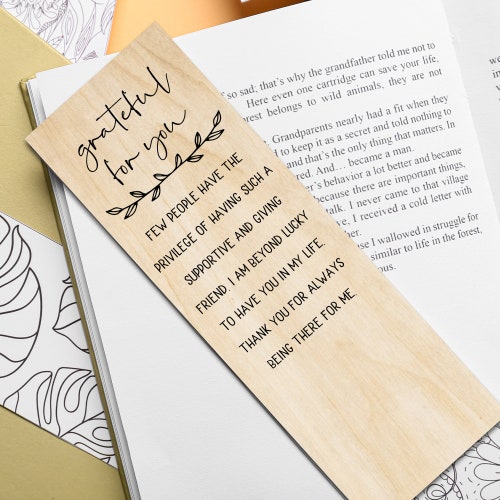 grateful
for you
FEW PEOPLE HAVE THE
PRIVILEGE OF HAVING SUCH A
SUPPORTIVE AND GIVING
FRIEND. I AM BEYOND LUCKY
TO HAVE YOU IN MY LIFE.
THANK YOU FOR ALWAYS
BEING THERE FOR ME.
so sad; that's why the grandfather told me not to
Here even one cartridge can save your life.
forest belongs to wild animals, they are not
Grandparents nearly had a fit when they
to keep it as a secret and told nothing to
and that's the only thing that matters. In
red. And... became a man.
r's behavior a lot better and became
because there are important things,
talk. I never came to that village
. I received a cold letter with
se I wallowed in struggle for
similar to life in the forest,